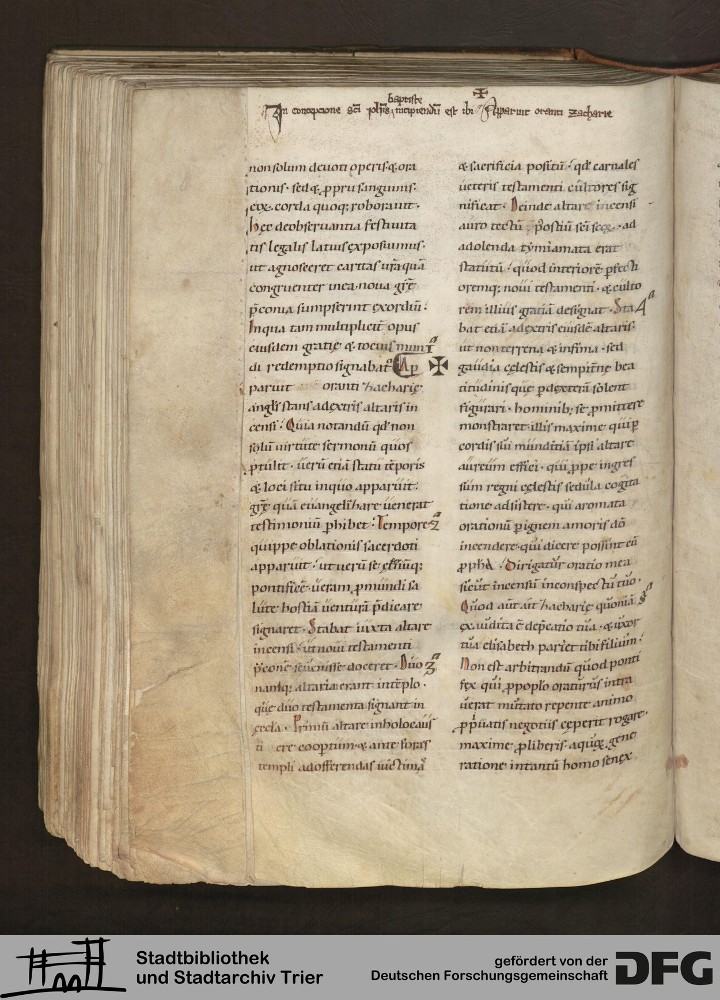 baptiste
In concepcione sc̄i ioħis incipiendū est ibi Apparuit oranti zacharie
non solum devoti operis & ora
tionis· sed & ꝓprii sanguinis·
eoꝝ corda quoq; roboravit·
hęc de observantia festivita
tis legalis latius exposuimus·
ut agnosceret caritas vr̄a quā
congruenter in ea nova gr̄ę
p̄conia sumpserint exordiū·
In qua tam multiplicit̄ opus
eiusdem gratię & tocius mun
di redemptio signabat᷑· Ap 1ª
paruit oranti zacharię
angl̄s stans a dextris altaris in
censi· Quia notandū qd̄ non
solū virtute sermonū quos
ꝓtulit· verū etiā statu tēporis
& loci situ in quo apparuit·
gr̄ę quā euangelizare venerat
testimoniū ꝓhibet· Tempore 2ª
quippe oblationis sacerdoti
apparuit· ut verū se & et̄nūq;
pontificē· veram ꝓ mundi sa
lute hostiā venturū p̄dicare
signaret· Stabat iuxta altare
incensi· ut novi testamenti
p̄conē se venisse doceret· Duo 3ª
namq; altaria erant in tēplo·
que duo testamenta signant in
ęccl̄a· Primū altare in holocaus
ti ere coopertum· & ante fores
templi ad offerendas victimas
& sacrificia positū· qd̄ carnales
veteris testamenti cultores sig
nificat· Deinde altare incensi
auro tectū· ꝓ ostiū sc̄i scōꝝ· ad
adolenda tymiamata erat
statutū· quod interiorē ꝑfecti
oremq; novi testamenti· & culto
rem illius gratiā designat· Sta 4ª
bat etiā a dextris eiusdē altaris·
ut non terrena & infima· sed
gaudia cęlestis & sempitnę bea
titudinis que ꝑ dexterā solent
figurari· hominib; se ꝓmittere
monstraret· illis maxime qui ꝑ
cordis sui munditiā ipsi altare
aureum effici· quippe ingres
sum regni cęlestis sedula cogita
tione adsistere· qui aromata
orationū ꝑ ignem amoris dō
incendere· qui dicere possint cū
ꝓph̄a· Dirigatur oratio mea
sicut incensū in conspectu tuo·
Quod aut̄ ait zacharię quoniā 5ª
exaudita ē dep̄catio tua· & uxor
tua elisabeth pariet tibi filium·
Non est arbitrandū quod ponti
fex qui ꝓ pop̄lo oraturus intra
verat mutato repente animo
ꝓ p̄vatis negotiis ceperit rogare·
maxime ꝓ liberis a quoꝝ gene
ratione in tantū homo senex
Stadtbibliothek
und Stadtarchiv Trier
gefördert von der
Deutschen Forschungsgemeinschaft
DFG